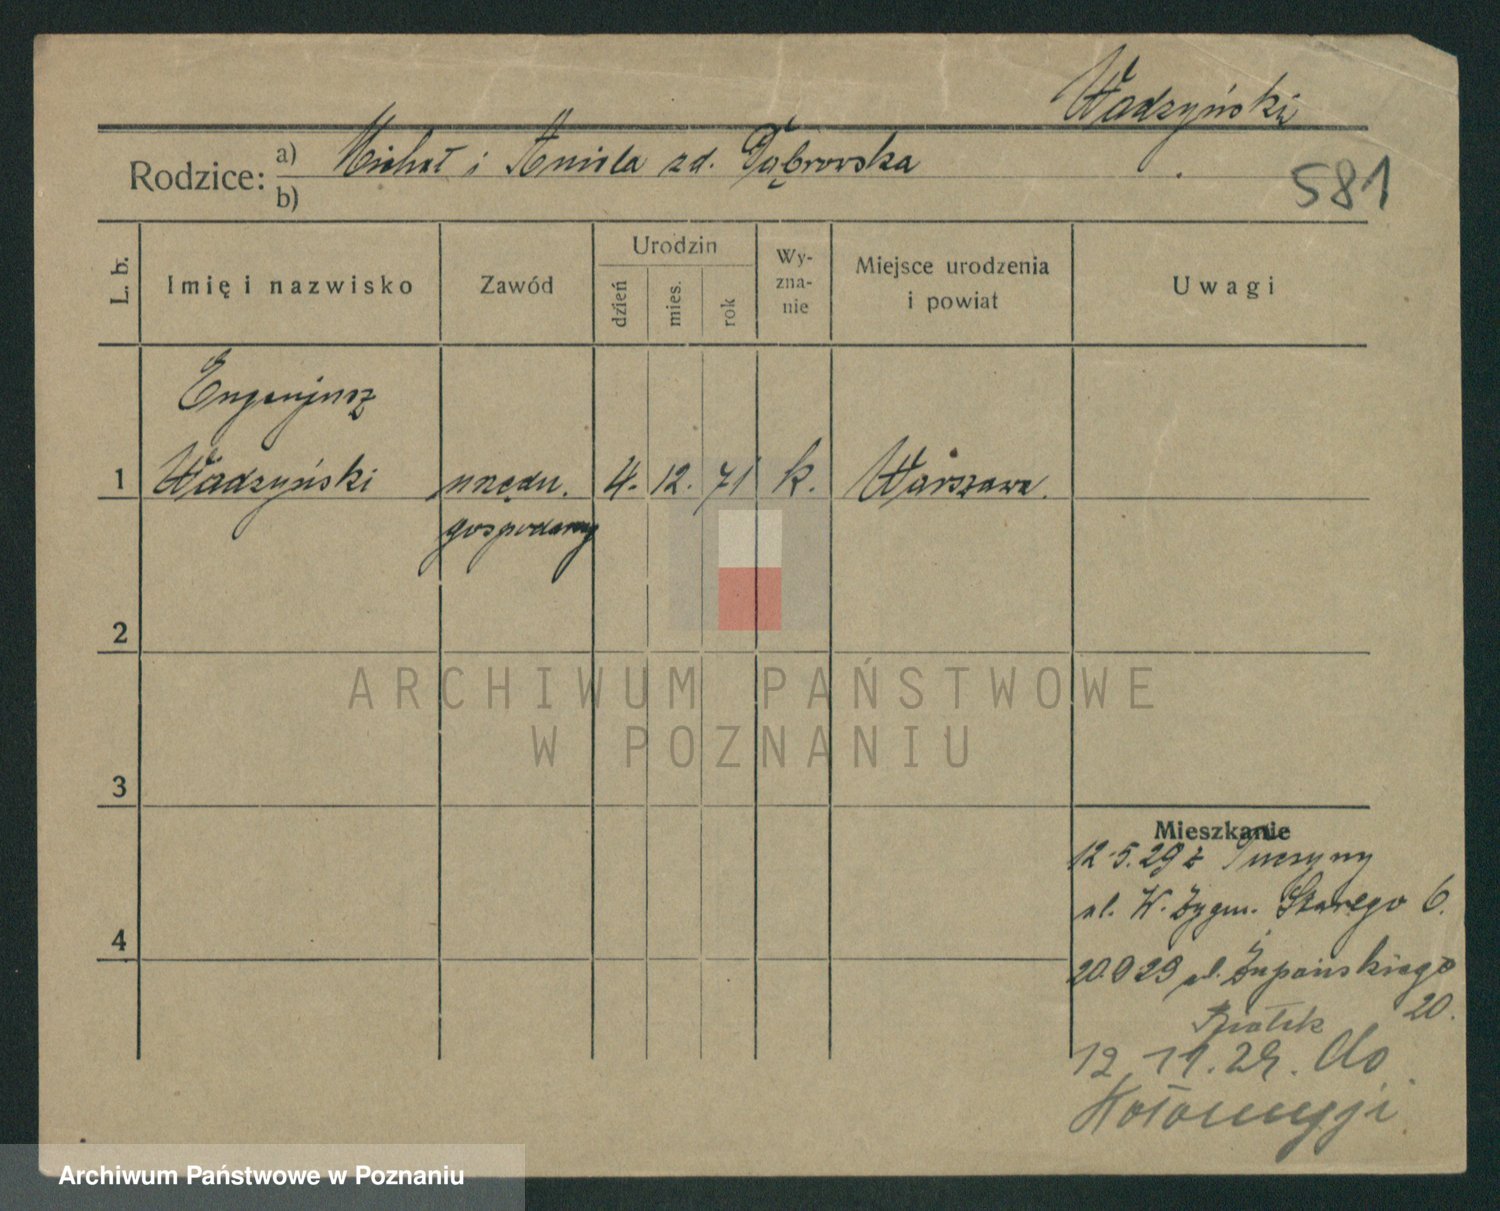 Wadzyński
Rodzice: a) Michał i Aniela zd. Dąbrowska
b)
581
L. b.
Imię i nazwisko
Zawód
Urodzin
dzień
mies.
rok
Wy-
zna-
nie
Miejsce urodzenia
i powiat
Uwagi
Eugenjusz
1 Wadzyński urzędn. 4. 12. 71 k. Warszawa.
gospodarczy
2
3
4
Mieszkanie
12.5.29 z
ul. K. Zygm. Starego 6.
20.9 29 ul. Żupańskiego
20.
12 11. 29. do
Kołomyji
ARCHIWUM PAŃSTWOWE
W POZNANIU
Archiwum Państwowe w Poznaniu